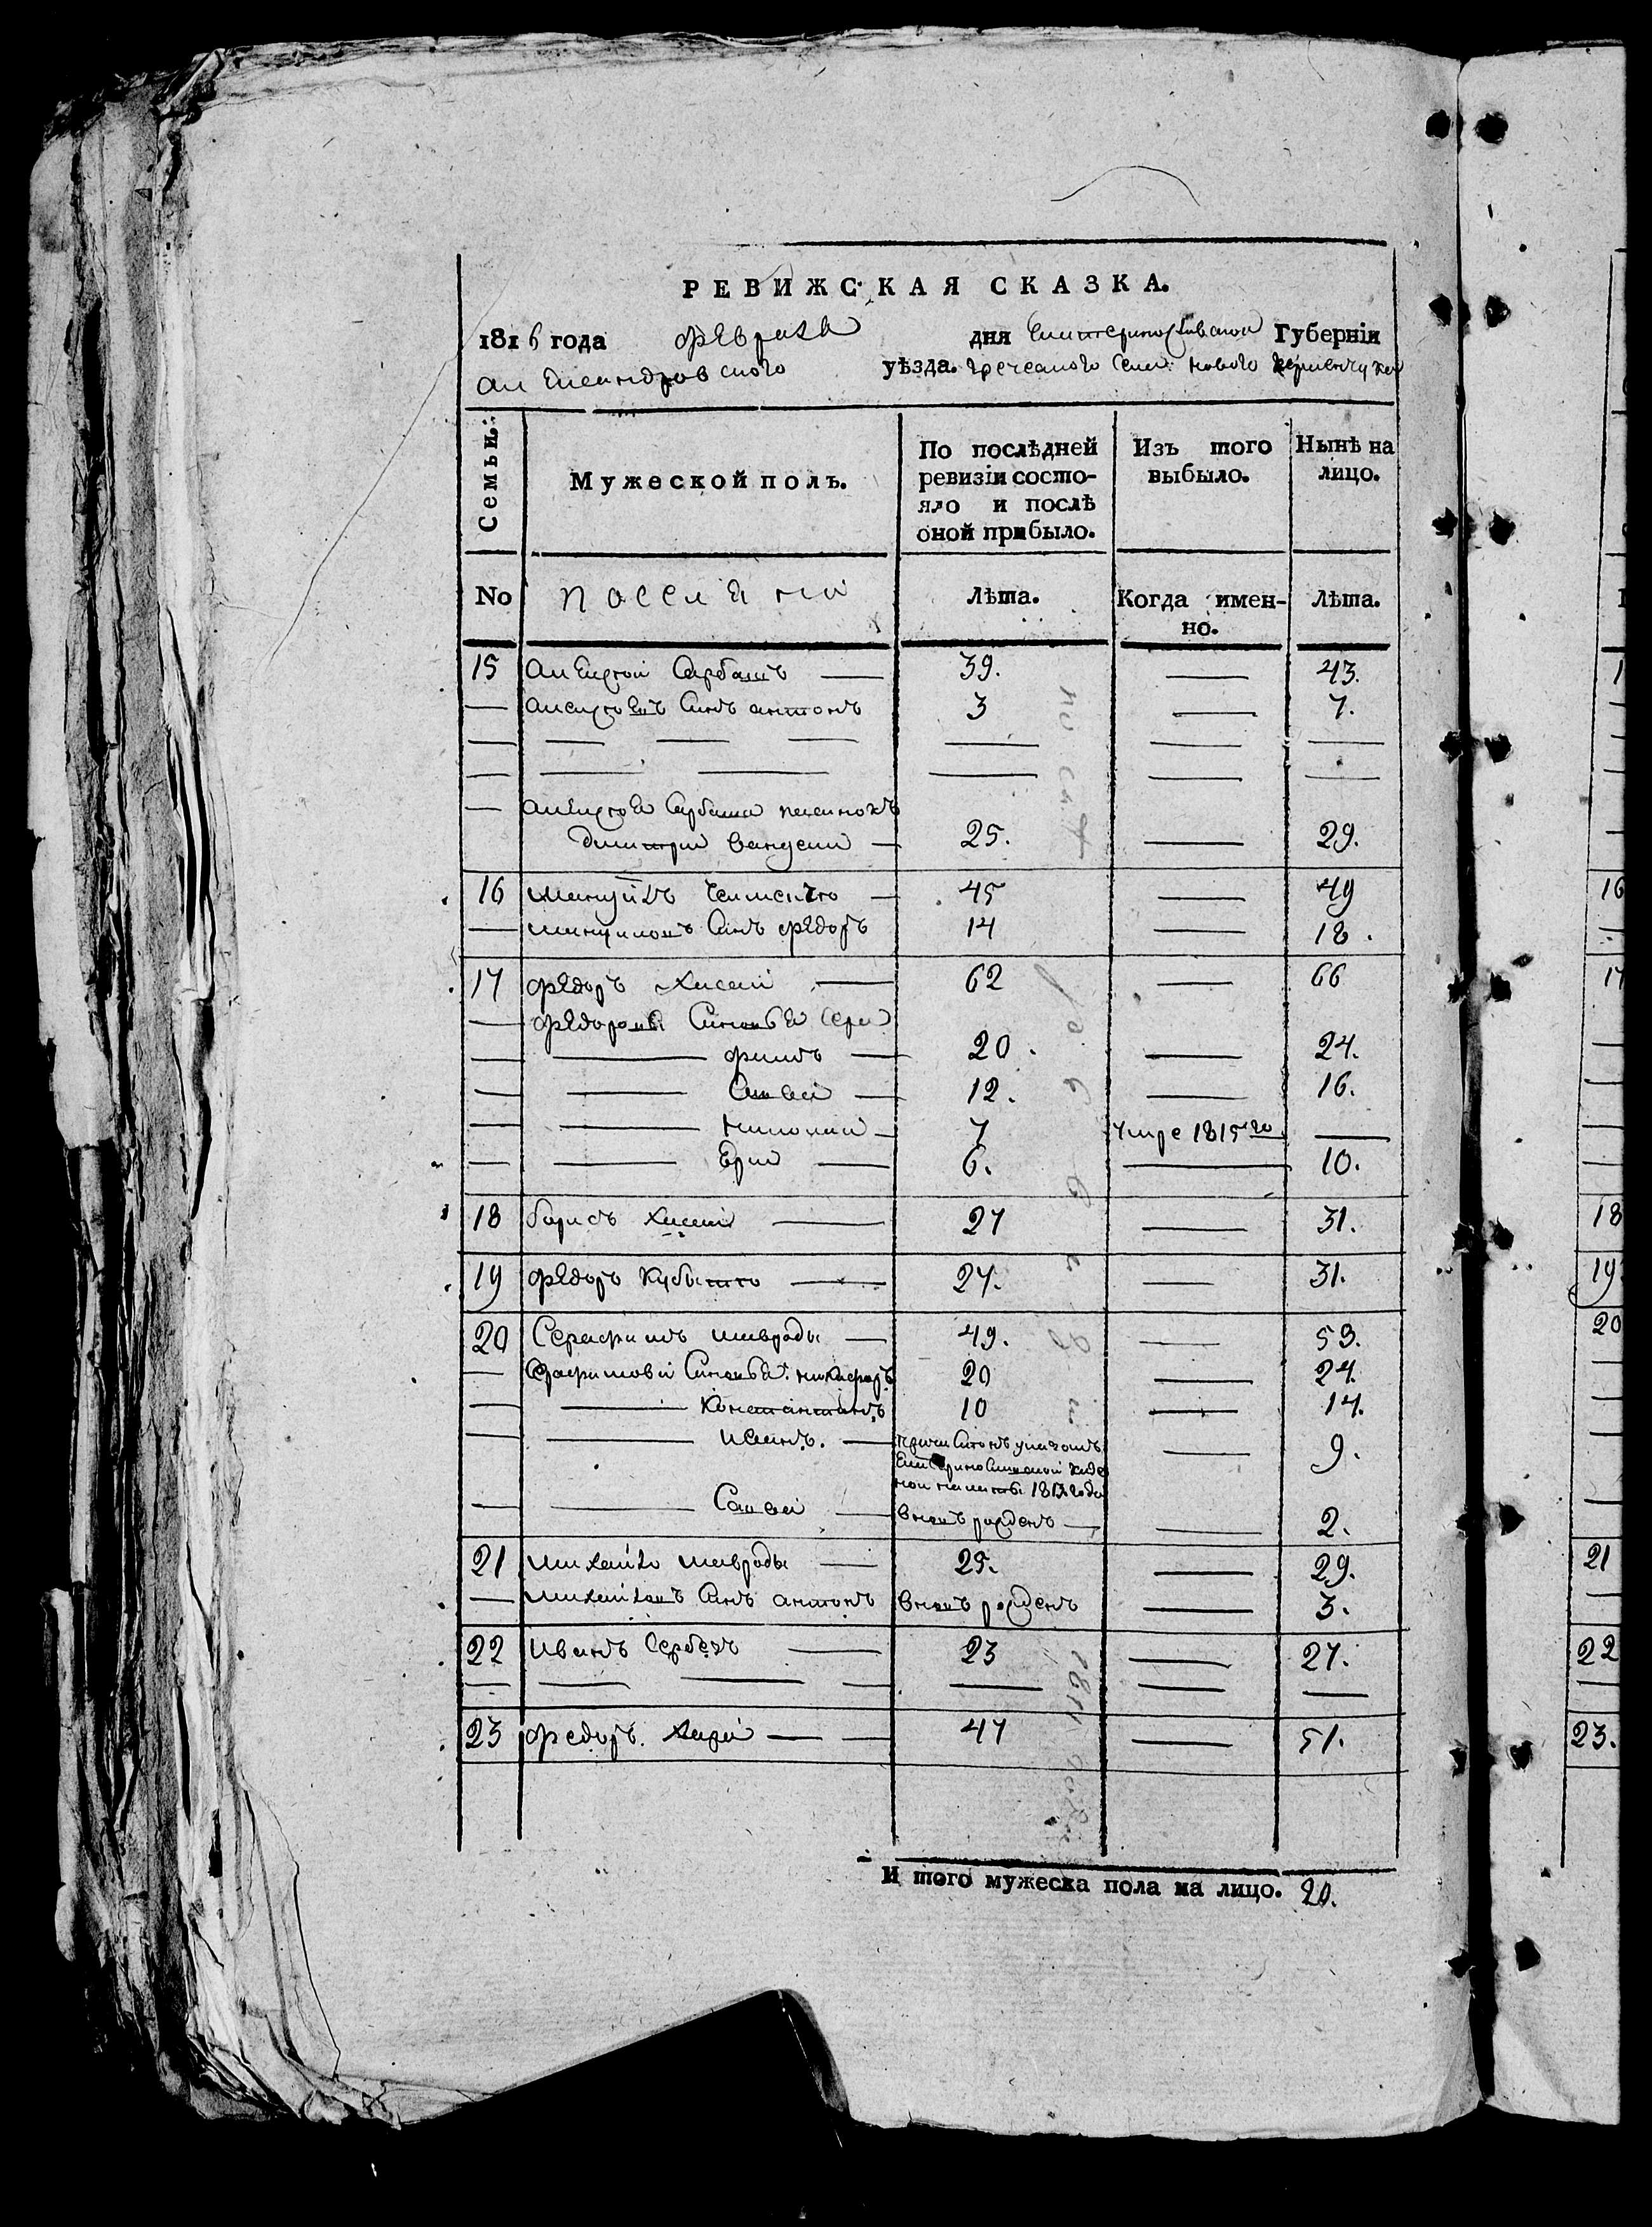 РЕВИЖСКАЯ СКАЗКА.
1816 года Февраля дня Екатеринославской Губерніи
александровского уѣзда. греческого Селе: нового керменчука
Семьи.
Мужеской полъ.
По послѣдней ревизіи состояло и послѣ оной прибыло.
Изъ того выбыло.
Нынѣ на лицо.
No поселяни Лѣта. Когда именно. Лѣта.
15 алексей Сарбашъ — 39. — 43.
— алексеевъ Синъ антонъ 3 — 7.
— — — — — — —
— — — — — —
— алексея Сарбаша
димитри — 25. — 29.
16 мануйлъ — 45 — 49
— мануиловъ Синъ федоръ 14 — 18.
17 федоръ хаси — 62 — 66
— федорови Синовья
— — — 20. — 24.
— — Савва — 12. — 16.
— — николай — 7 умре 1815го —
— — — 6. — 10.
18 борисъ хаси — 27 — 31.
19 федоръ — 27. — 31.
20 Серафимъ мавроди — 49. — 53.
— Серафимови Синовья: никифоръ 20 — 24.
— — Константинъ 10 — 14.
— — иванъ. — — 9.
Екатеринославской казе
ной палаты года
— — Савва — вновъ рожденъ — — 2.
21 михайло мавроди — 25. — 29.
— михайловъ Синъ антонъ вновъ рожденъ — 3.
22 иванъ Сербезъ — 23 — 27.
— — — — — — —
23 федоръ хара — — 47 — 51.
И того мужеска пола на лицо. 20.
16
17
18
19
20
21
22
23.